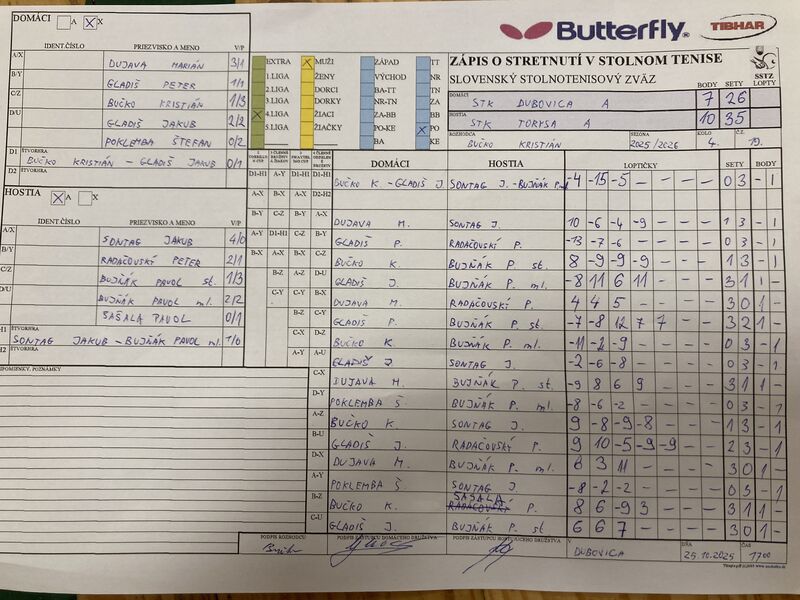 DOMÁCI A X
Butterfly
TIBHAR
IDENT.ČÍSLO PRIEZVISKO A MENO V/P
A/X DUJAVA MARIÁN 3/1
B/Y GLADIŠ PETER 1/1
C/Z BUČKO KRISTIÁN 1/3
D/U GLADIŠ JAKUB 2/2
POKLEMBA ŠTEFAN 0/2
D1 ŠTVORHRA BUČKO KRISTIÁN - GLADIŠ JAKUB 0/1
D2 ŠTVORHRA
HOSTIA A X
IDENT.ČÍSLO PRIEZVISKO A MENO V/P
A/X SONTAG JAKUB 4/0
B/Y RADAČOVSKÝ PETER 2/1
C/Z BUJŇÁK PAVOL st. 1/3
D/U BUJŇÁK PAVOL ml. 2/2
SAŠALA PAVOL 0/1
H1 ŠTVORHRA SONTAG JAKUB - BUJŇÁK PAVOL ml. 1/0
H2 ŠTVORHRA
PRIPOMIENKY, POZNÁMKY
EXTRA MUŽI ZÁPAD TT
1.LIGA ŽENY VÝCHOD NR
2.LIGA DORCI BA-TT TN
3.LIGA DORKY NR-TN ZA
4.LIGA ŽIACI ZA-BB BB
5.LIGA ŽIAČKY PO-KE PO
BA KE
ZÁPIS O STRETNUTÍ V STOLNOM TENISE
SLOVENSKÝ STOLNOTENISOVÝ ZVÄZ
SSTZ
BODY SETY LOPTY
DOMÁCI STK DUBOVICA A 7 26
HOSTIA STK TORYSA A 10 35
ROZHODCA BUČKO KRISTIÁN SEZÓNA 2025/2026 KOLO 4. Č.Z. 19.
DOMÁCI HOSTIA LOPTIČKY SETY BODY
D1-H1 A-Y D1-H1 D1-H1 BUČKO K. - GLADIŠ J. SONTAG J. - BUJŇÁK P. ml -4 -15 -5 - - 0 3 - 1
A-X B-X A-X D2-H2
B-Y C-Z B-Y A-X DUJAVA M. SONTAG J. 10 -6 -4 -9 - 1 3 - 1
A-Y D1-H1 C-Z B-Y GLADIŠ P. RADAČOVSKÝ P. -13 -7 -6 - - 0 3 - 1
B-X A-X B-X C-Z BUČKO K. BUJŇÁK P. st. 8 -9 -9 -9 - 1 3 - 1
B-Z A-Z D-U GLADIŠ J. BUJŇÁK P. ml. -8 11 6 11 - 3 1 1 -
C-Y C-Y B-X DUJAVA M. RADAČOVSKÝ P. 4 4 5 - - 3 0 1 -
B-Z C-Y GLADIŠ P. BUJŇÁK P. st. -7 -8 12 7 7 3 2 1 -
C-X D-Z BUČKO K. BUJŇÁK P. ml. -11 -2 -9 - - 0 3 - 1
A-Y A-U GLADIŠ J. SONTAG J. -2 -6 -8 - - 0 3 - 1
C-X DUJAVA M. BUJŇÁK P. st. -9 8 6 9 - 3 1 1 -
D-Y POKLEMBA Š BUJŇÁK P. ml. -8 -6 -2 - - 0 3 - 1
A-Z BUČKO K. SONTAG J. 9 -8 -9 -8 - 1 3 - 1
B-U GLADIŠ J. RADAČOVSKÝ P. 9 10 -5 -9 -9 2 3 - 1
D-X DUJAVA M. BUJŇÁK P. ml. 6 3 11 - - 3 0 1 -
A-Y POKLEMBA Š SONTAG J. -8 -2 -2 - - 0 3 - 1
B-Z BUČKO K. SAŠALA RADAČOVSKÝ P. 8 6 -9 3 - 3 1 1 -
C-U GLADIŠ J. BUJŇÁK P. st 6 6 7 - - 3 0 1 -
PODPIS ROZHODCU PODPIS ZÁSTUPCU DOMÁCEHO DRUŽSTVA PODPIS ZÁSTUPCU HOSŤUJÚCEHO DRUŽSTVA V DUBOVICA DŇA 25.10.2025 ČAS 17:00